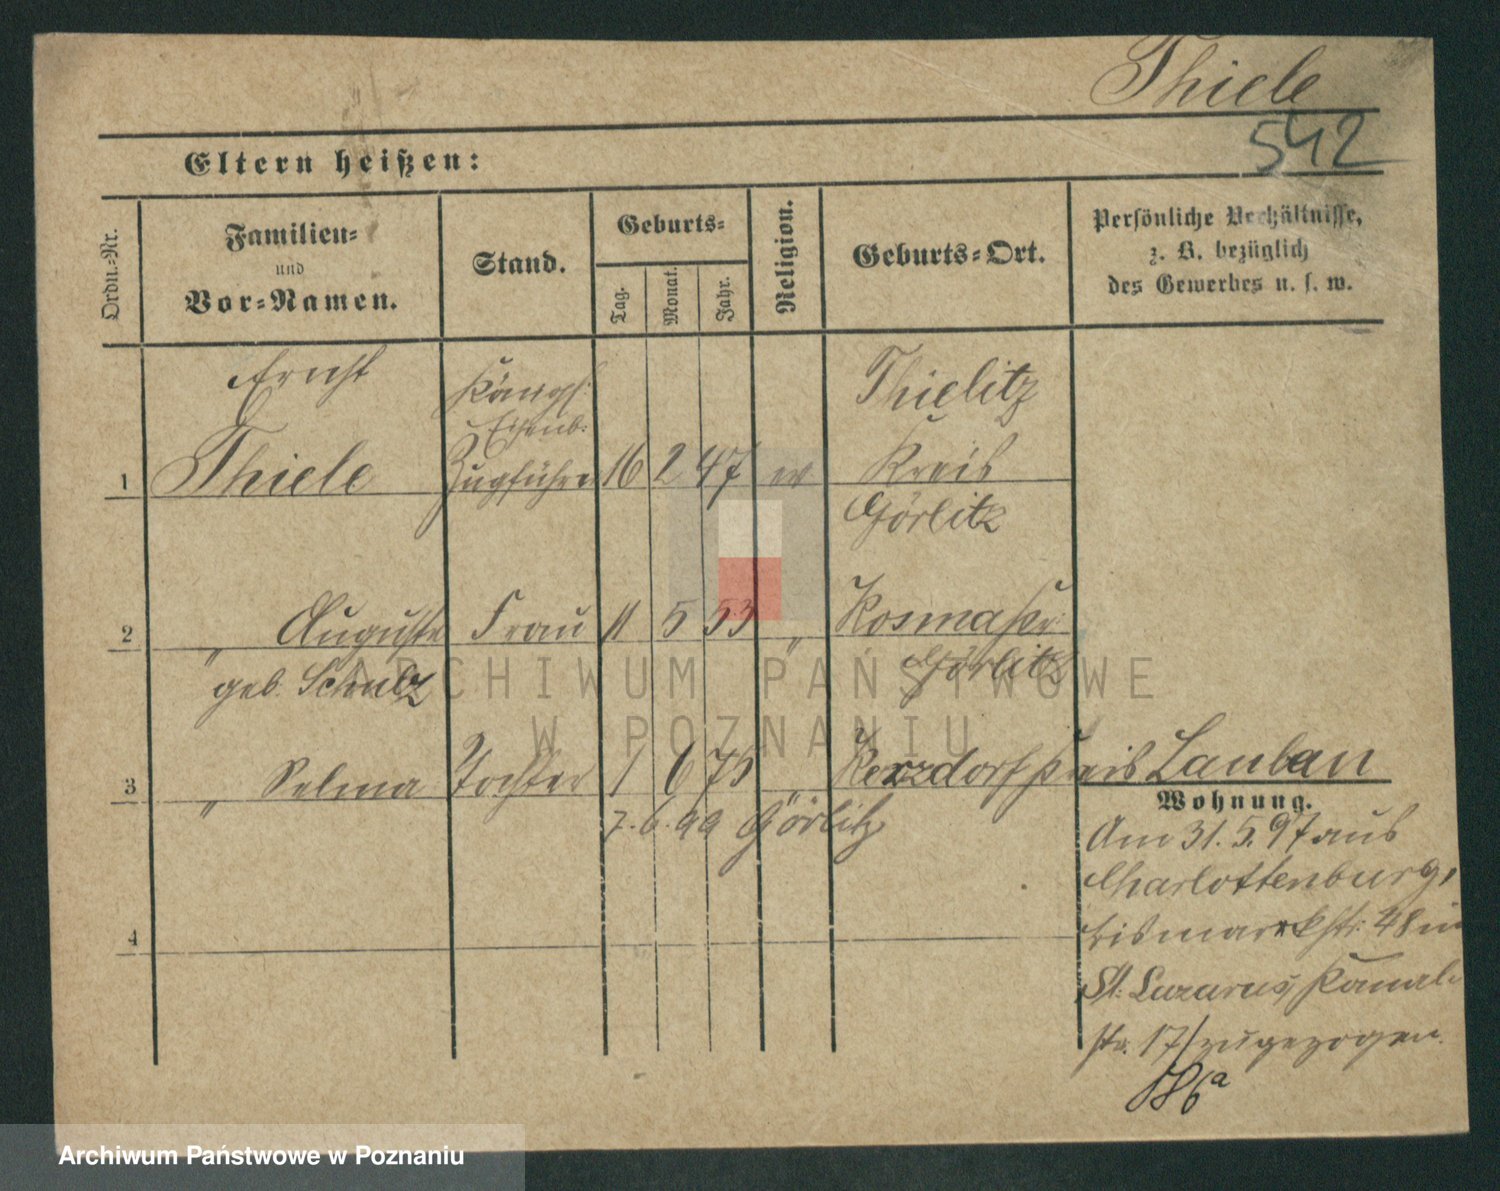 Thiele
542
Eltern heißen:
Ordn.-Nr.
Familien-
und
Vor-Namen.
Stand.
Geburts-
Tag.
Monat.
Jahr.
Religion.
Geburts-Ort.
Persönliche Verhältnisse,
z. B. bezüglich
des Gewerbes u. s. w.
1
Ernst
Thiele
Königl:
Eisenb:
Zugführer
16 2 47 ev
Thielitz
Kreis
Görlitz
2
" Auguste
geb. Schulz
Frau
11 5 53 "
Kosma Kr:
Görlitz
3
" Selma
Tochter
1 6 75 "
Kerzdorf Kreis Lauban
7. 6. 99 Görlitz
4
Wohnung.
Am 31. 5. 97 aus
Charlottenburg,
Bismarckstr: 48 in
St: Lazarus, Kanal-
str. 17/ zugezogen.
ARCHIWUM PAŃSTWOWE
W POZNANIU
Archiwum Państwowe w Poznaniu